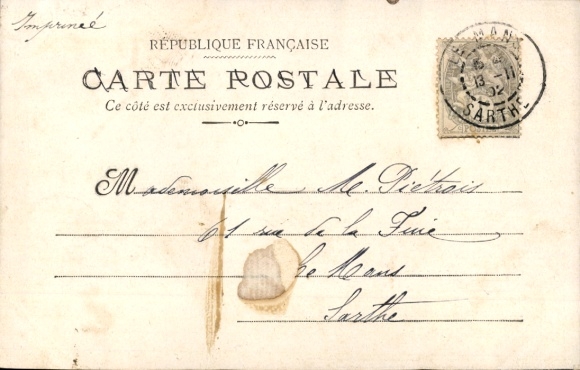 Imprimé
RÉPUBLIQUE FRANÇAISE
CARTE POSTALE
Ce côté est exclusivement réservé à l'adresse.
LE MANS
13 -11
02
SARTHE
Mademoiselle M. Piétrois
61 rue de la
Le Mans
Sarthe